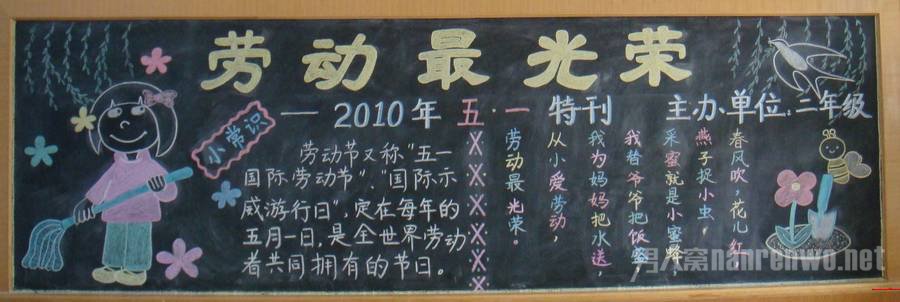 劳动最光荣
—2010年 五·一 特刊 主办单位:二年级
小常识
劳动节又称"五一
国际劳动节"、"国际示
威游行日",定在每年的
五月一日,是全世界劳动
者共同拥有的节日。
春风吹,花儿红,
燕子捉小虫,
采蜜就是小蜜蜂
我替爷爷把饭盛,
我为妈妈把水送,
从小爱劳动,
劳动最光荣。
男人窝nanrenwo.net